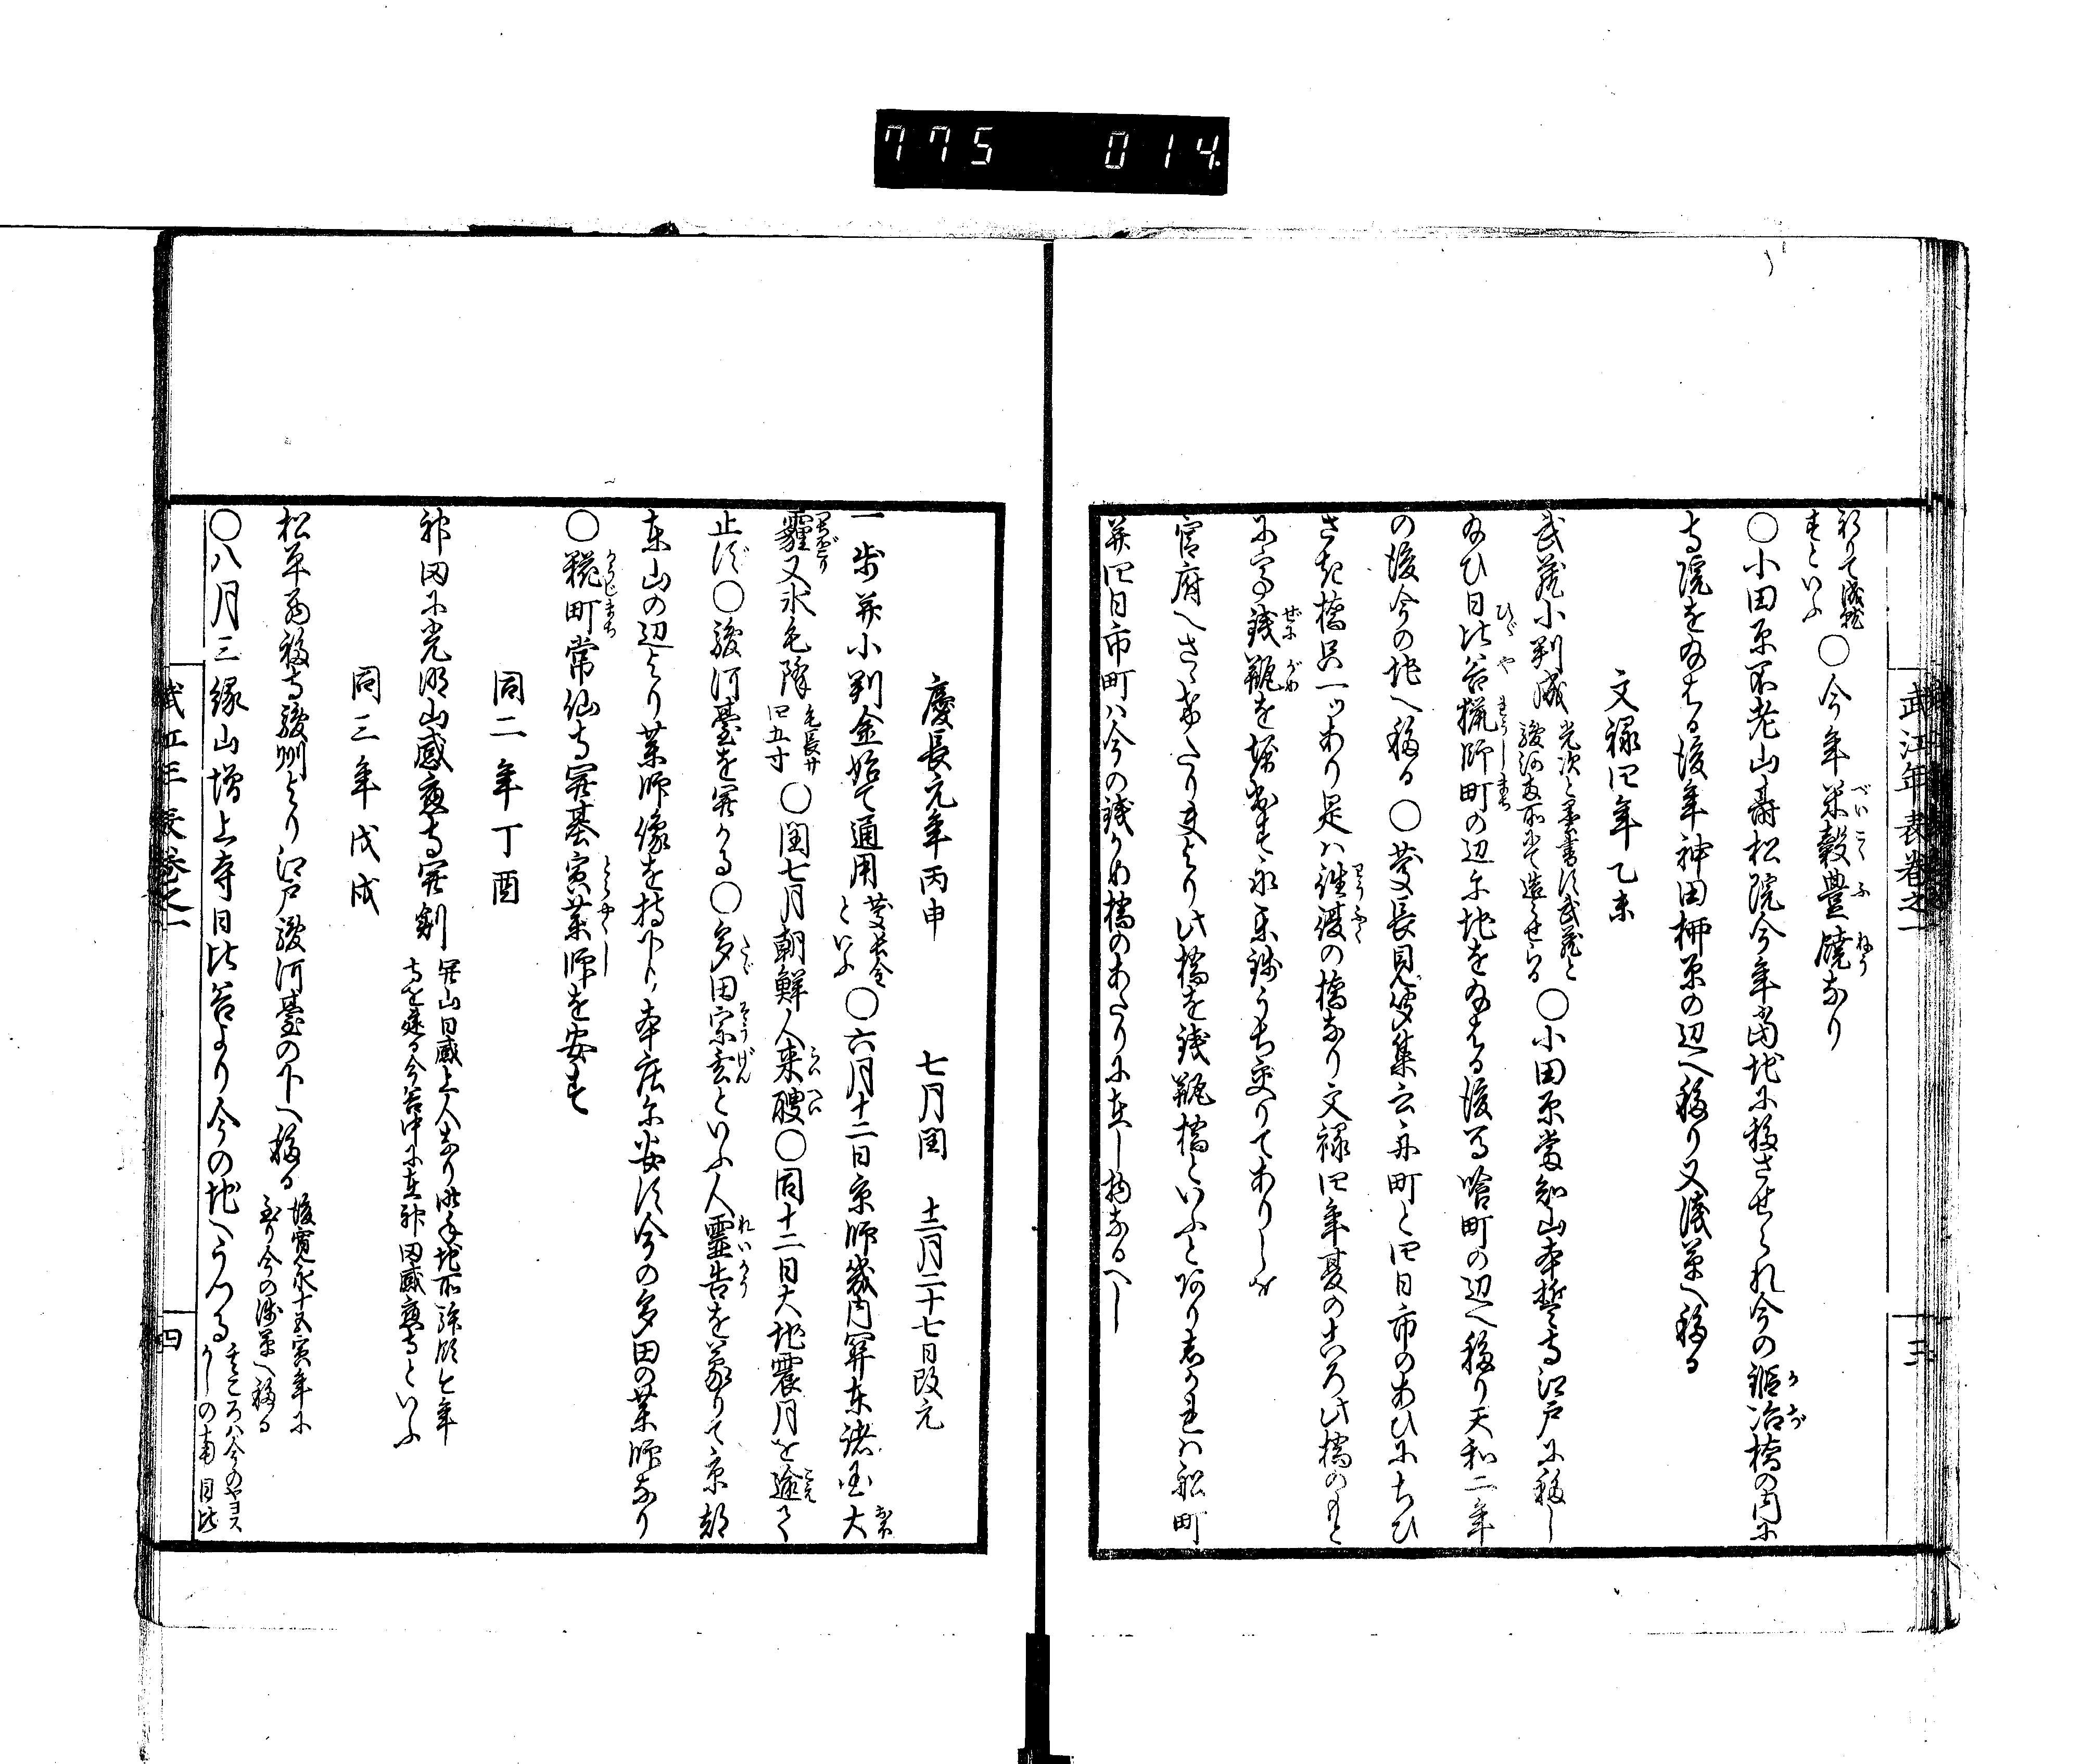 775 014
武江年表巻之一
三
祈りて成就
すといふ
○今年米穀豊饒なり
○小田原不老山壽松院今年当地に移させられ今の鍛冶橋の内に
寺院を給はる後年神田柳原の辺へ移り又浅草へ移る
文禄四年乙未
武蔵小判成
光次と墨書す武蔵と
駿河両所にて造らせらる
○小田原当知山本誓寺江戸に移し
給ひ日比谷猟師町の辺に地を給はる後馬喰町の辺へ移り天和二年
の後今の地へ移る○慶長見聞集云舟町と四日市のあひにちひ
さき橋只一ツあり是は往復の橋なり文禄四年夏のころ此橋のもと
にて銭瓶を掘出す永楽銭うち交りてありしを
官府へさゝげたり夫より此橋を銭瓶橋といふとありしかれは船町
并四日市町は今の銭かめ橋のあたりに在し物なるへし
慶長元年丙申　七月閏　十二月二十七日改元
一歩并小判金始て通用
慶長金
といふ
○六月十二日京師畿内関東諸国大
霾又氷毛降
毛長サ
四五寸
○閏七月朝鮮人来聘○同十二日大地震月を逾て
止ず○駿河臺を開かる○多田宗玄といふ人霊告を蒙りて京都
東山の辺より薬師像を持下り本庄に安す今の多田の薬師なり
○糀町常仙寺開基寅薬師を安す
同二年丁酉
神田に光明山感應寺開創
開山日感上人なり此年地所拝領七年
寺を建る今谷中に在神田感應寺といふ
同三年戊戌
松平西福寺駿州より江戸駿河臺の下へ移る
後寛永十五寅年に
至り今の浅草へ移る
○八月三縁山増上寺日比谷より今の地へうつる
其ころは今のヤヨス
かしの南日比
武江年表巻之一
四